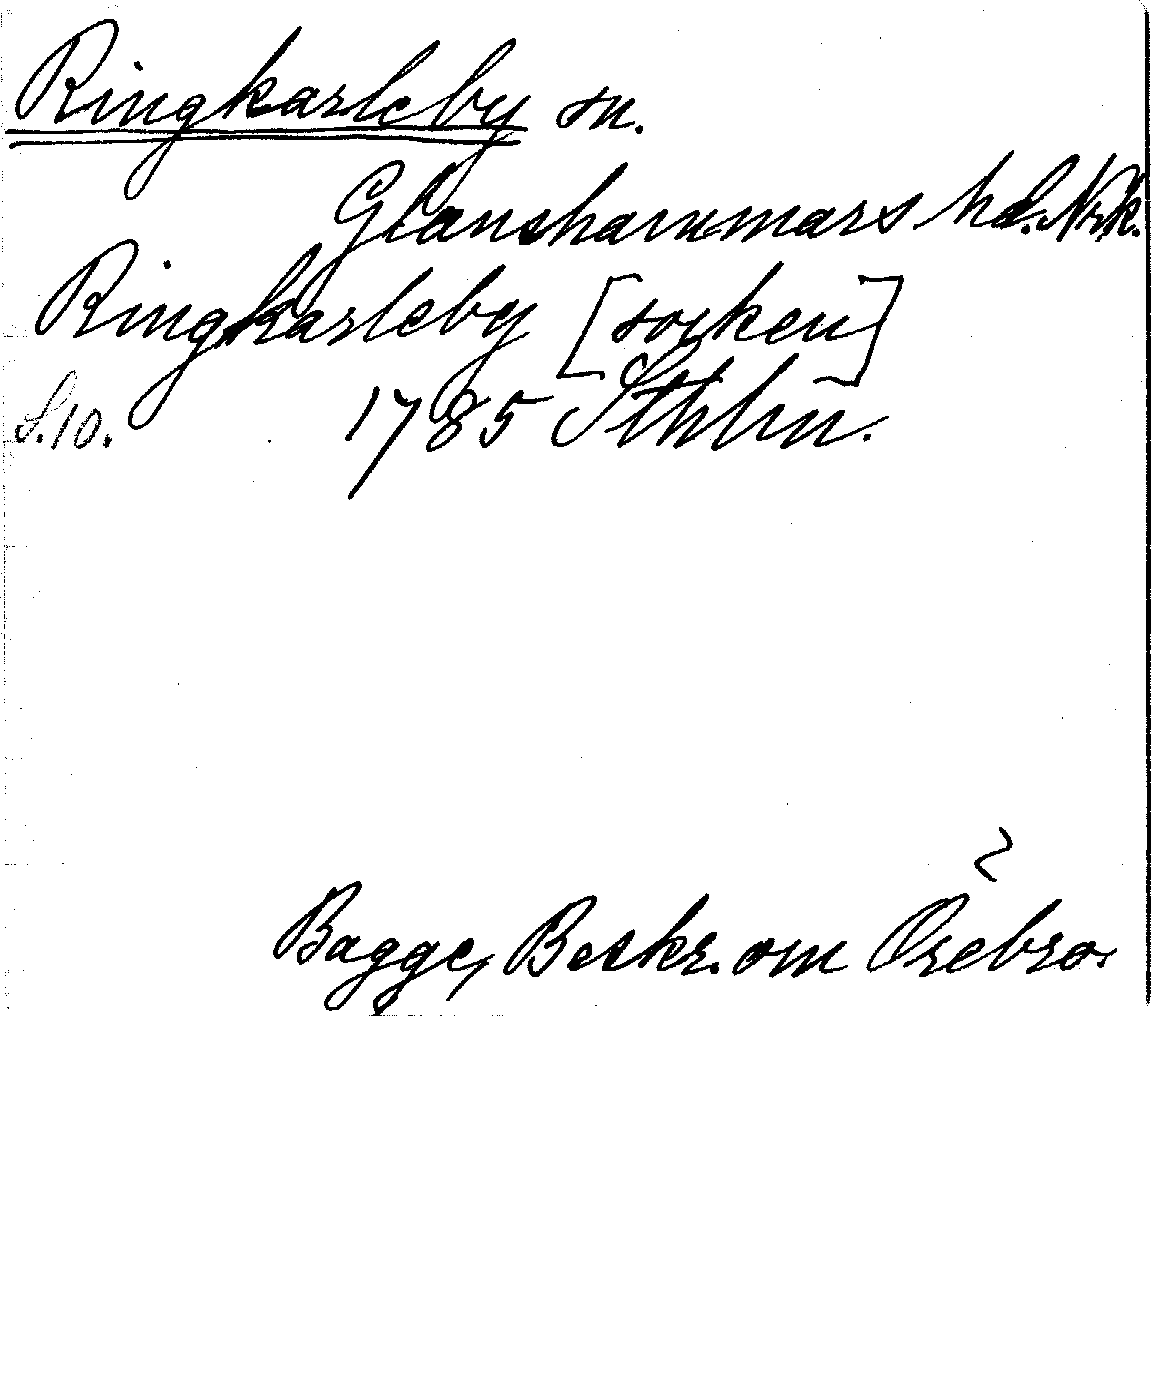 Ringkarleby sn.
Glanshammars hd. Nrk.
Ringkarleby [socken]
S. 10. 1785 Sthlm.
Bagge, Beskr. om Örebro.